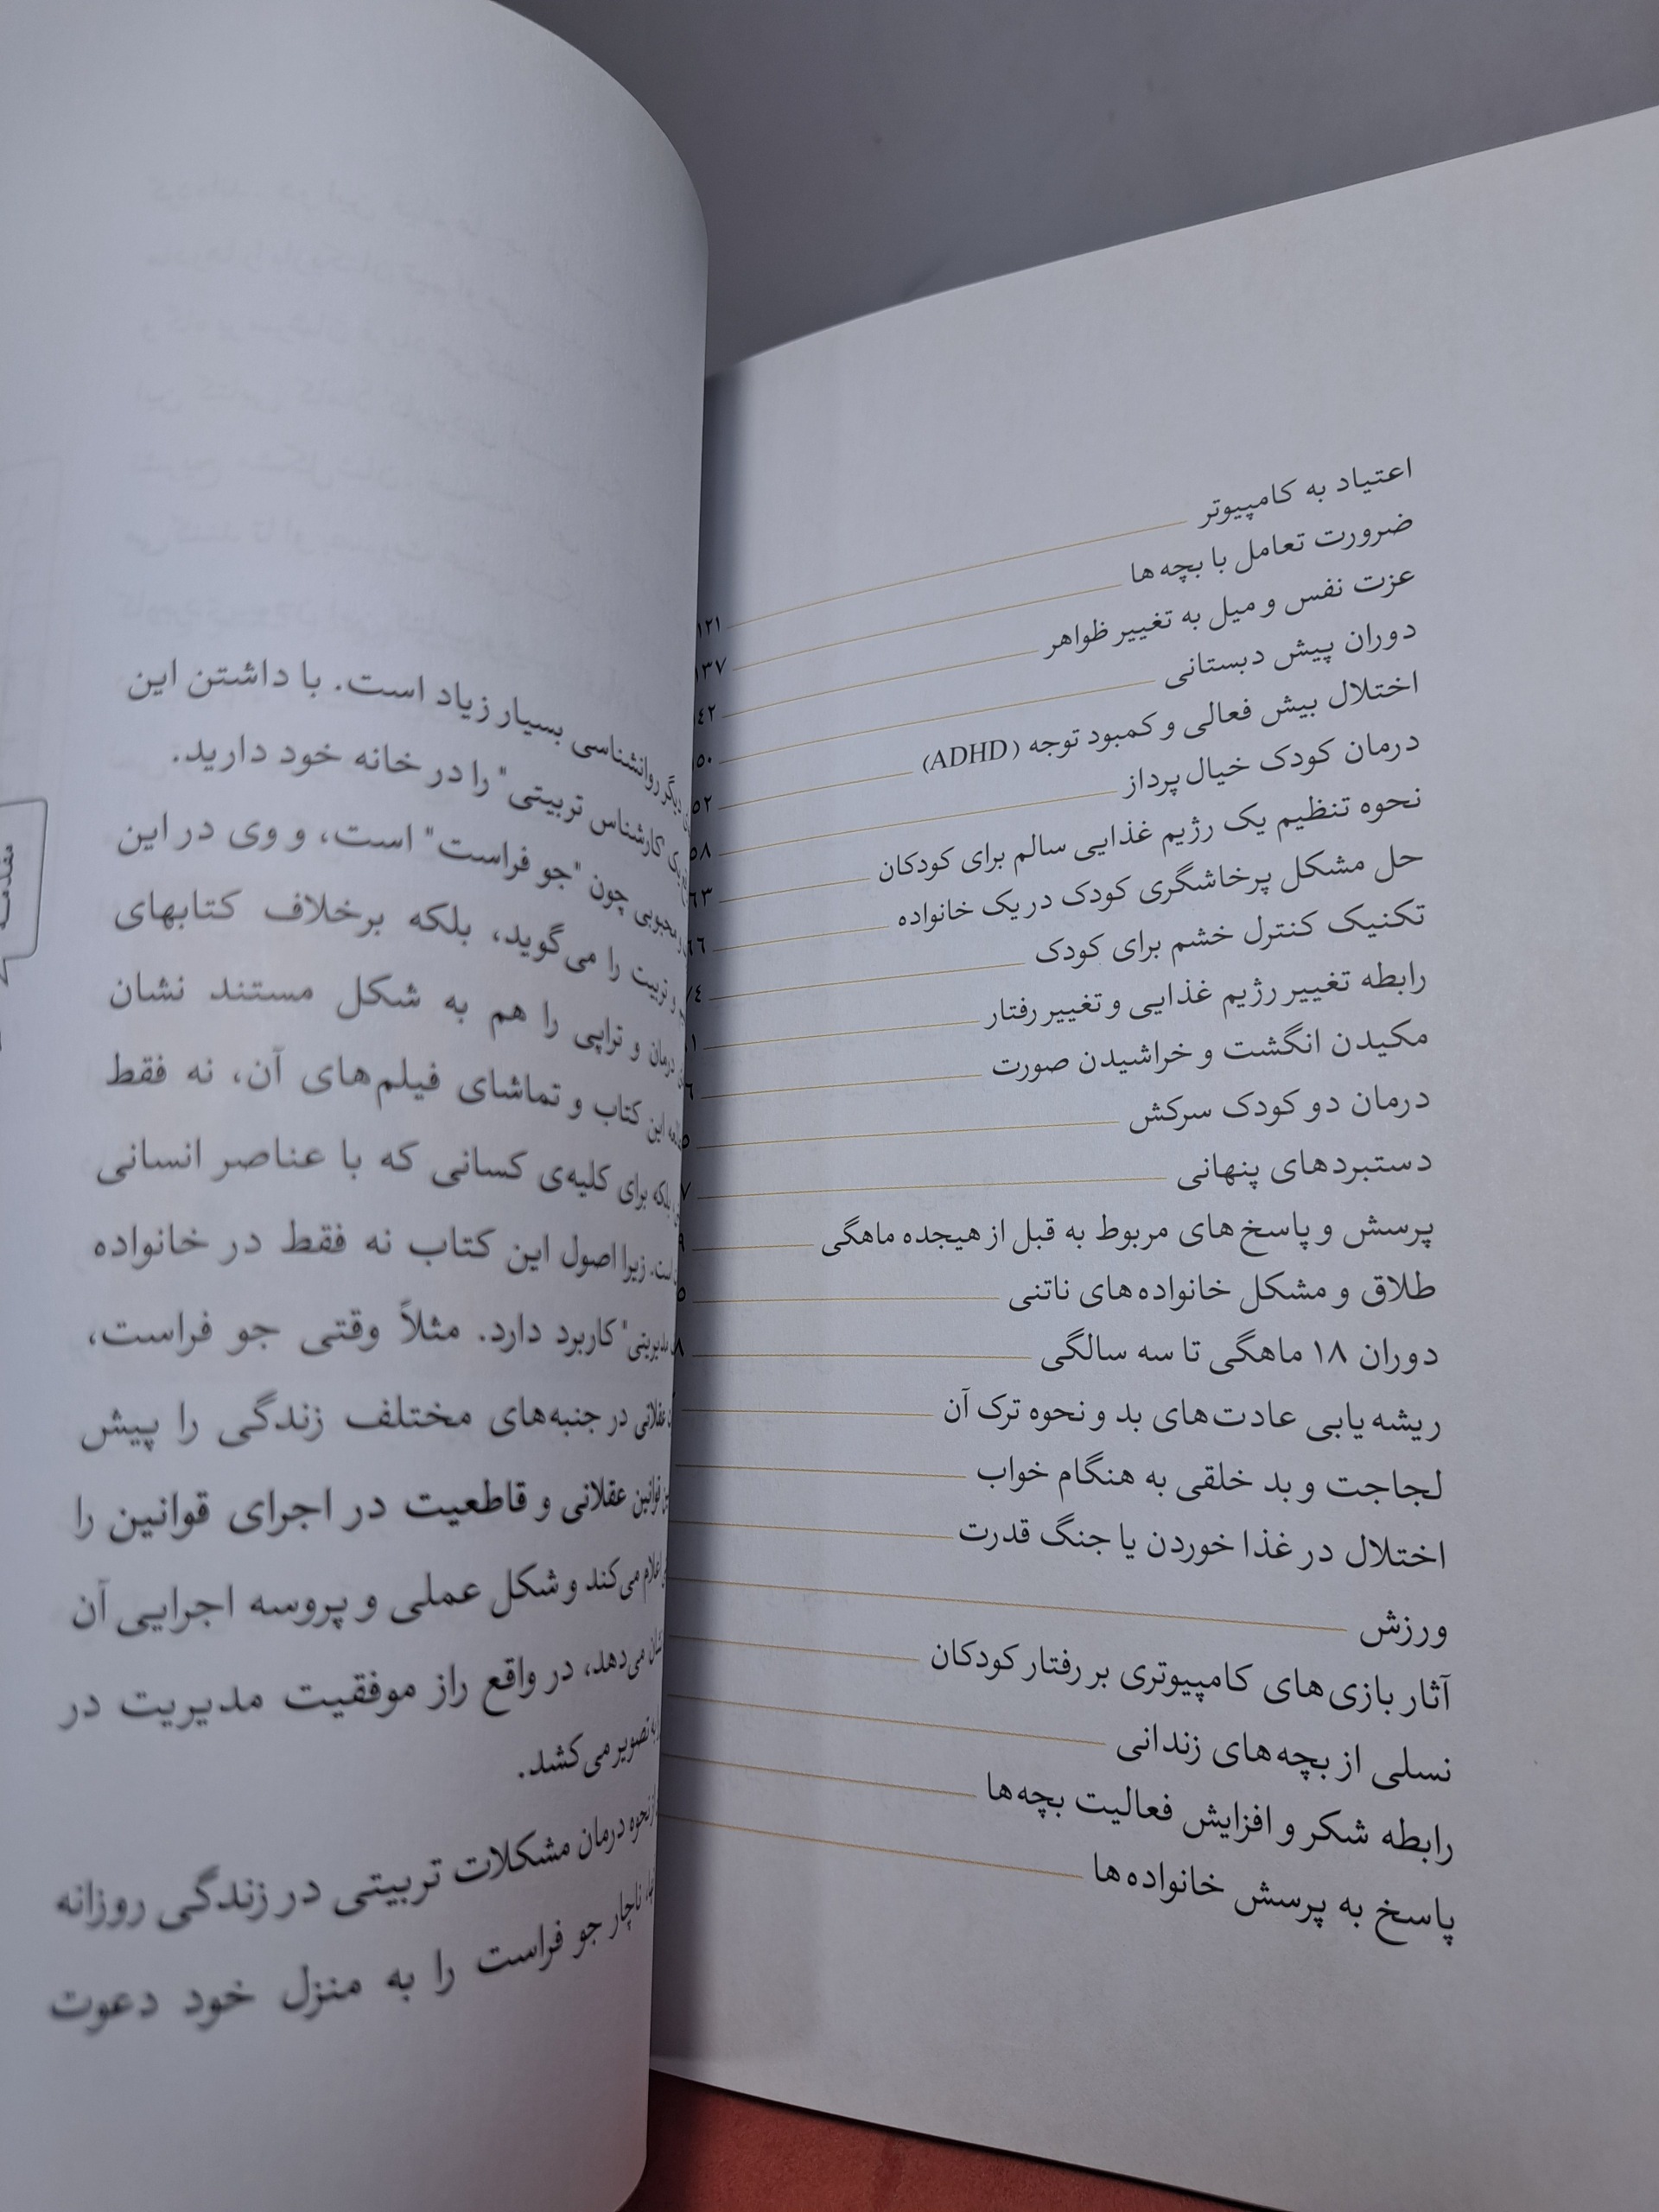 اعتیاد به کامپیوتر ۱۲۱
ضرورت تعامل با بچه‌ها ۱۳۷
عزت نفس و میل به تغییر ظواهر
دوران پیش دبستانی
اختلال بیش فعالی و کمبود توجه (ADHD)
درمان کودک خیال‌پرداز
نحوه تنظیم یک رژیم غذایی سالم برای کودکان
حل مشکل پرخاشگری کودک در یک خانواده
تکنیک کنترل خشم برای کودک
رابطه تغییر رژیم غذایی و تغییر رفتار
مکیدن انگشت و خراشیدن صورت
درمان دو کودک سرکش
دستبردهای پنهانی
پرسش و پاسخ‌های مربوط به قبل از هیجده ماهگی
طلاق و مشکل خانواده‌های ناتنی
دوران ۱۸ ماهگی تا سه سالگی
ریشه‌یابی عادت‌های بد و نحوه ترک آن
لجاجت و بد خلقی به هنگام خواب
اختلال در غذا خوردن یا جنگ قدرت
ورزش
آثار بازی‌های کامپیوتری بر رفتار کودکان
نسلی از بچه‌های زندانی
رابطه شکر و افزایش فعالیت بچه‌ها
پاسخ به پرسش خانواده‌ها
مقدمه
دیگر روانشناسی بسیار زیاد است. با داشتن این
کارشناس تربیتی" را در خانه خود دارید.
محبوبی چون "جو فراست" است، و وی در این
و تربیت را می‌گوید، بلکه برخلاف کتابهای
درمان و تراپی را هم به شکل مستند نشان
این کتاب و تماشای فیلم‌های آن، نه فقط
بلکه برای کلیه‌ی کسانی که با عناصر انسانی
است. زیرا اصول این کتاب نه فقط در خانواده
مدیریتی" کاربرد دارد. مثلاً وقتی جو فراست،
عقلانی در جنبه‌های مختلف زندگی را پیش
قوانین عقلانی و قاطعیت در اجرای قوانین را
اعلام می‌کند و شکل عملی و پروسه اجرایی آن
نشان می‌دهد، در واقع راز موفقیت مدیریت در
به تصویر می‌کشد.
از نحوه درمان مشکلات تربیتی در زندگی روزانه
ناچار جو فراست را به منزل خود دعوت